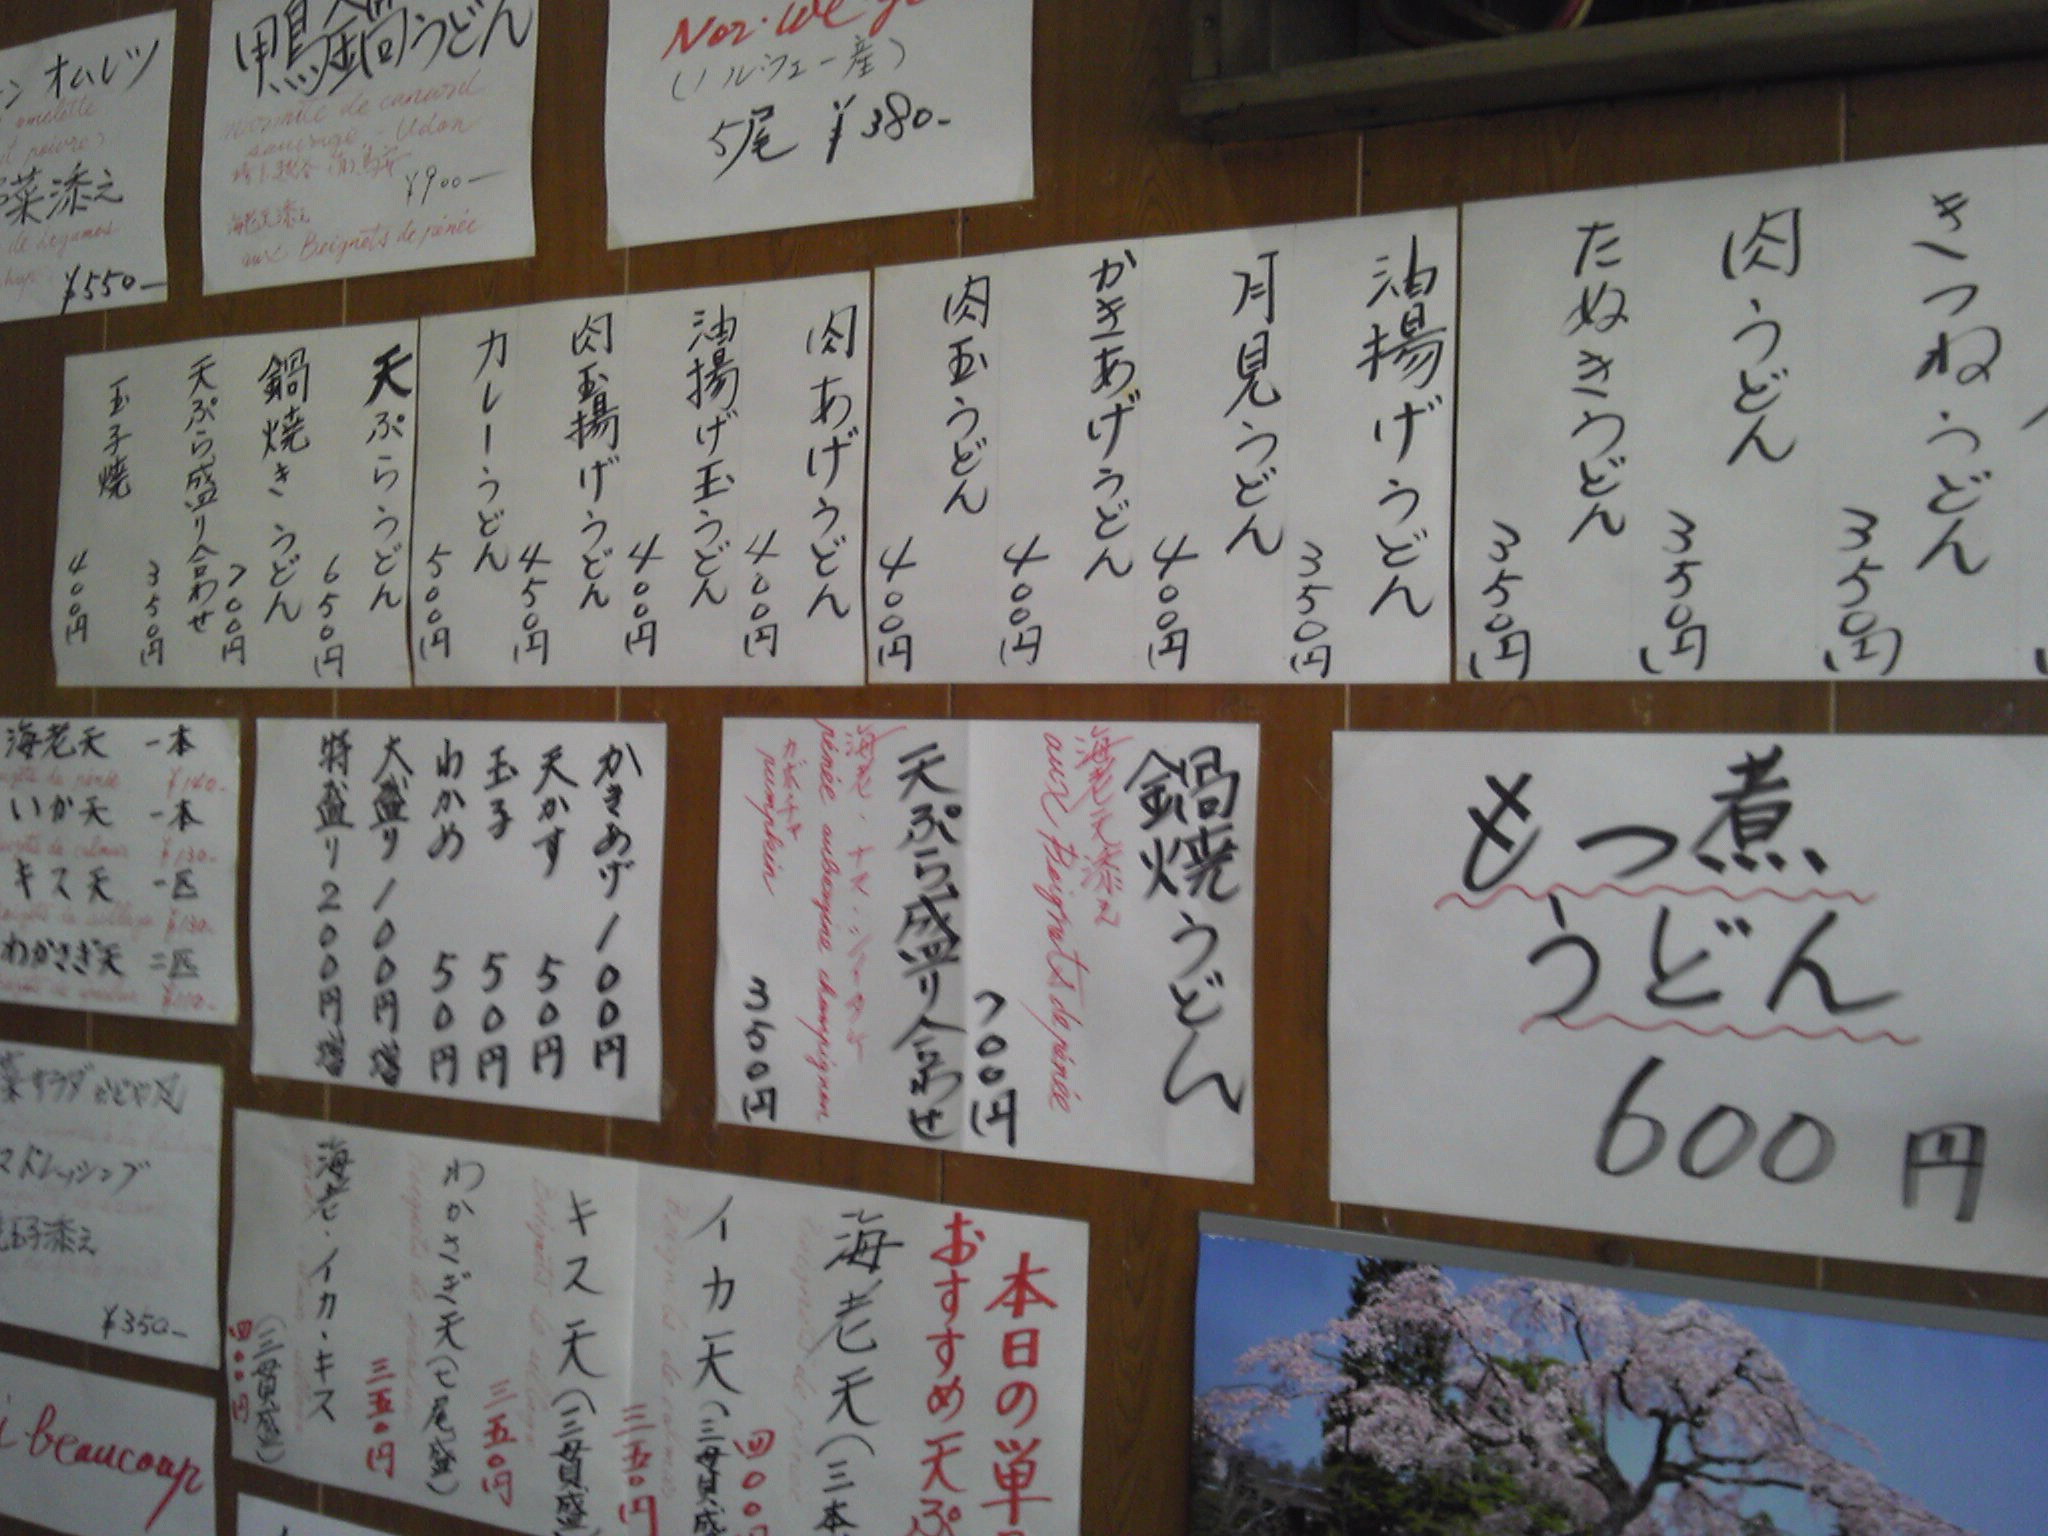 オムレツ
omelette
菜添え
¥550-
鴨鍋うどん
de canard
sauvage - Udon
¥900-
海老天添え
aux Beignets de
(ノルウェー産)
5尾 ¥380-
きつねうどん
350円
肉うどん
350円
たぬきうどん
350円
油揚げうどん
350円
月見うどん
400円
かきあげうどん
400円
肉玉うどん
400円
肉あげうどん
400円
油揚げ玉うどん
400円
肉玉揚げうどん
450円
カレーうどん
500円
天ぷらうどん
650円
鍋焼きうどん
700円
天ぷら盛り合わせ
350円
玉子焼
400円
海老天 一本
いか天 一本
¥130-
キス天 一匹
¥130-
わかさぎ天 二匹
かきあげ100円
天かす 50円
玉子 50円
わかめ 50円
大盛り100円増
特盛り200円増
鍋焼うどん
海老天添え
aux Beignets de
700円
天ぷら盛り合わせ
海老・ナス・
aubergine champignon
pumpkin
350円
もつ煮
うどん
600円
菜サラダ
ドレッシング
添え
¥350-
beaucoup
本日の単
おすすめ天ぷ
海老天(三本
四〇〇円
イカ天(
三五〇円
キス天(
三五〇円
わかさぎ天(七尾盛)
三五〇円
海老・イカ・キス
四〇〇円